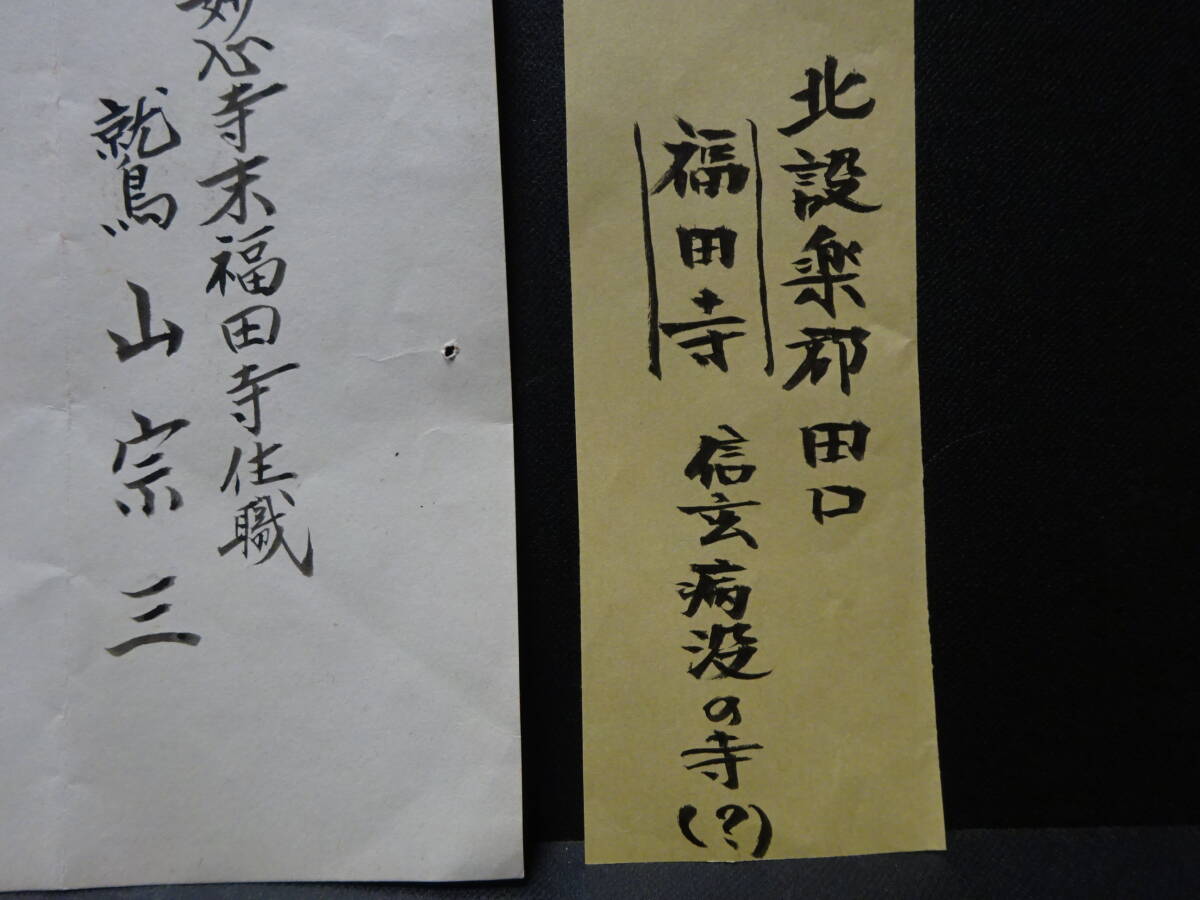 北設楽郡田口
福田寺 信玄病没の寺(?)
妙心寺末福田寺住職
鷲山宗三